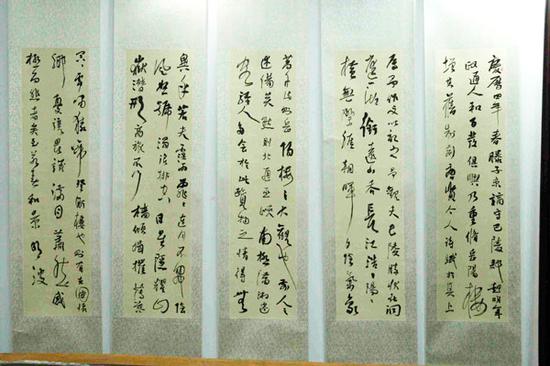 慶曆四年春滕子京謫守巴陵郡越明年
政通人和百廢俱興乃重修岳陽樓
增其舊制刻唐賢今人詩賦於其上
屬予作文以記之予觀夫巴陵勝狀在洞
庭一湖銜遠山吞長江浩浩湯湯
橫無際涯朝暉夕陰氣象
萬千此則岳陽樓之大觀也前人之
述備矣然則北通巫峽南極瀟湘遷
客騷人多會於此覽物之情得無
異乎若夫霪雨霏霏連月不開陰
風怒號濁浪排空日星隱曜山
嶽潛形商旅不行檣傾楫摧薄暮
冥冥虎嘯猿啼登斯樓也則有去國懷
鄉憂讒畏譏滿目蕭然感
極而悲者矣至若春和景明波